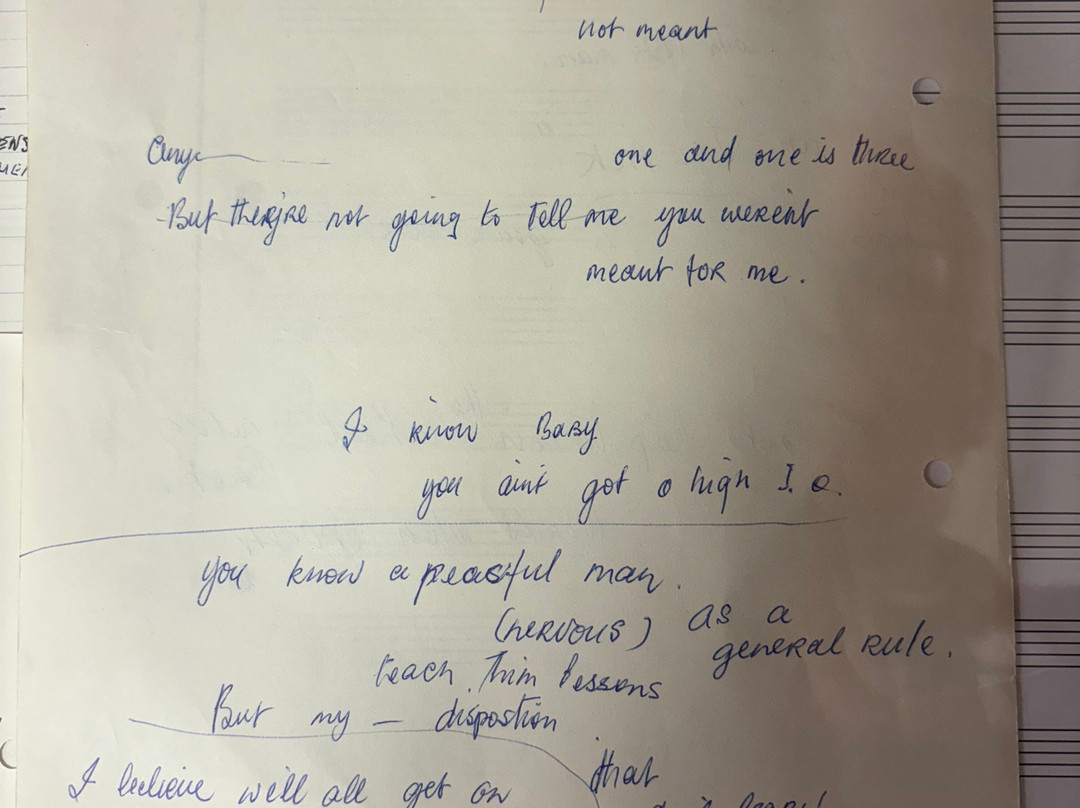 not meant
ENS
Any
one and one is three
But they're not going to tell me you weren't
meant for me.
I know Baby
you ain't got a high I.Q.
you know a peasful man.
(nervous) as a
general rule.
teach him lessons
But my — dispostion
I believe we'll all get on
that